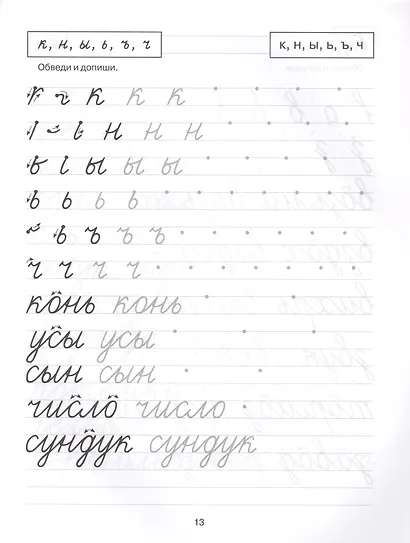 к, н, ы, ь, ъ, ч
к, н, ы, ь, ъ, ч
Обведи и допиши.
к к к
н н н
ы ы ы
ь ь ь ь
ъ ъ ъ
ч ч ч ч
конь конь
усы усы
сын сын
число число
сундук сундук
13